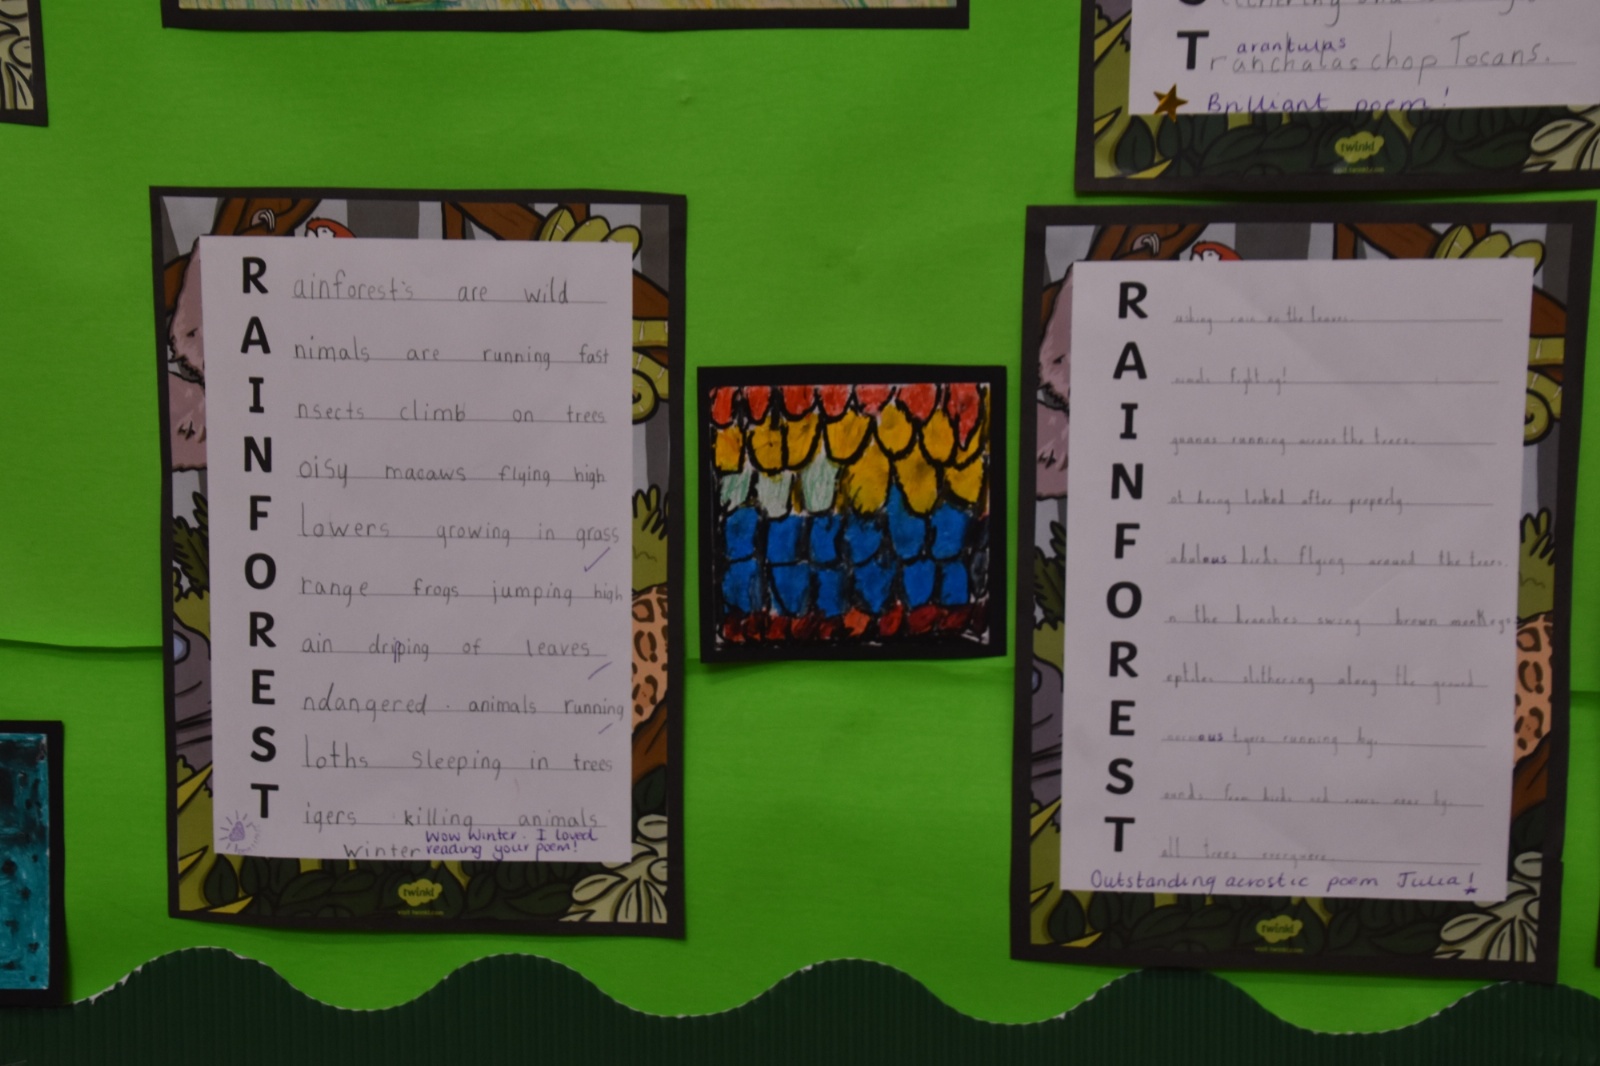 Tranchalas chop Tocans.
arantulas
Brilliant poem!
twinkl
Rainforest's are wild
Animals are running fast
Insects climb on trees
Noisy macaws flying high
Flowers growing in grass
Orange frogs jumping high
Rain dripping of leaves
Endangered animals running
Sloths sleeping in trees
Tigers killing animals
Winter
Wow Winter. I loved
reading your poem!
twinkl
R rain on the leaves
Animals fighting!
Iguanas running across the trees.
Not being looked after properly
Fabulous birds flying around the trees.
On the branches swing brown monkeys
Reptiles slithering along the ground
E tigers running by.
S from birds
Tall trees everywhere.
Outstanding acrostic poem Julia!
twinkl